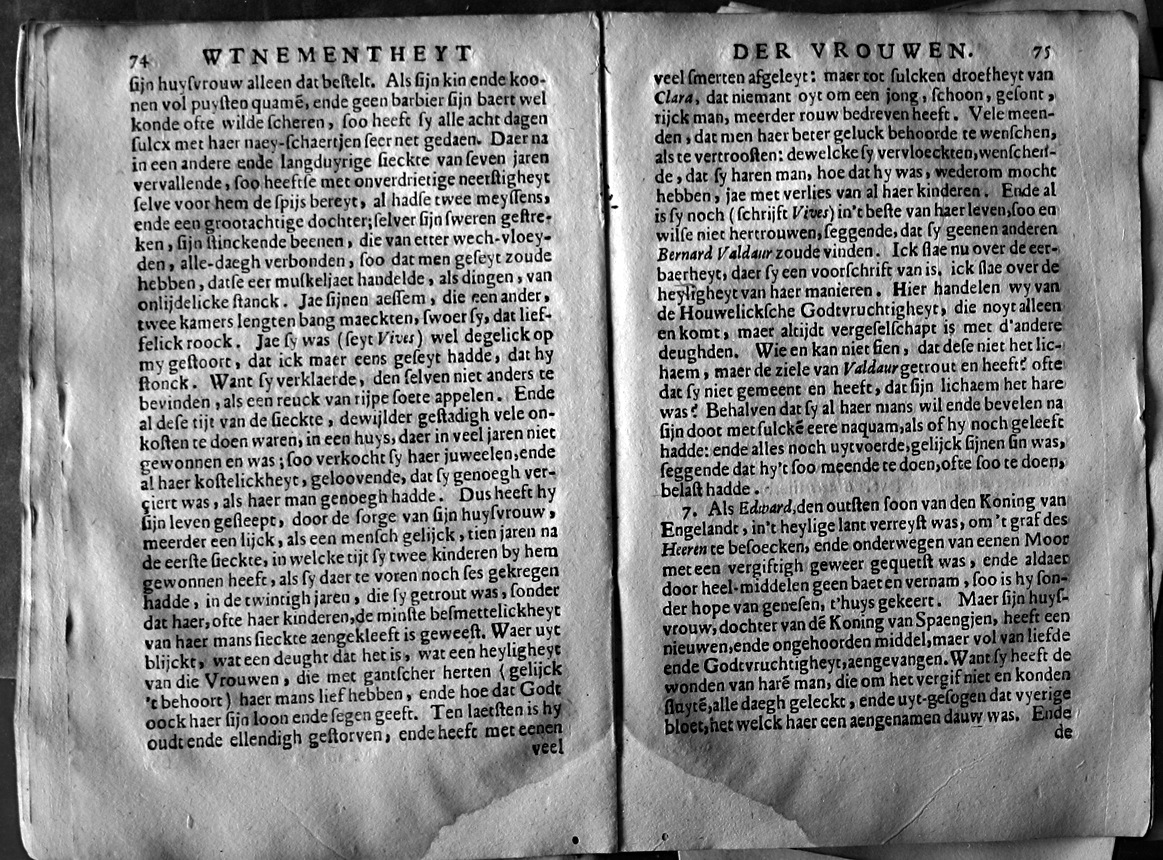 74 WTNEMENTHEYT
ſijn huyſvrouw alleen dat beſtelt. Als ſijn kin ende koo-
nen vol puyſten quamē, ende geen barbier ſijn baert wel
konde ofte wilde ſcheren, ſoo heeft ſy alle acht dagen
ſulcx met haer naey-ſchaertjen ſeer net gedaen. Daer na
in een andere ende langduyrige ſieckte van ſeven jaren
vervallende, ſoo heeftſe met onverdrietige neerſtigheyt
ſelve voor hem de ſpijs bereyt, al hadſe twee meyſſens,
ende een grootachtige dochter; ſelver ſijn ſweren geſtre-
ken, ſijn ſtinckende beenen, die van etter wech-vloey-
den, alle-daegh verbonden, ſoo dat men geſeyt zoude
hebben, datſe eer muſkeljaet handelde, als dingen, van
onlijdelicke ſtanck. Jae ſijnen aeſſem, die een ander,
twee kamers lengten bang maeckten, ſwoer ſy, dat lief-
felick roock. Jae ſy was (ſeyt Vives) wel degelick op
my geſtoort, dat ick maer eens geſeyt hadde, dat hy
ſtonck. Want ſy verklaerde, den ſelven niet anders te
bevinden, als een reuck van rijpe ſoete appelen. Ende
al deſe tijt van de ſieckte, dewijlder geſtadigh vele on-
koſten te doen waren, in een huys, daer in veel jaren niet
gewonnen en was; ſoo verkocht ſy haer juweelen, ende
al haer koſtelickheyt, geloovende, dat ſy genoegh ver-
çiert was, als haer man genoegh hadde. Dus heeft hy
ſijn leven geſleept, door de ſorge van ſijn huyſvrouw,
meerder een lijck, als een menſch gelijck, tien jaren na
de eerſte ſieckte, in welcke tijt ſy twee kinderen by hem
gewonnen heeft, als ſy daer te voren noch ſes gekregen
hadde, in de twintigh jaren, die ſy getrout was, ſonder
dat haer, ofte haer kinderen, de minſte beſmettelickheyt
van haer mans ſieckte aengekleeft is geweeſt. Waer uyt
blijckt, wat een deught dat het is, wat een heyligheyt
van die Vrouwen, die met gantſcher herten (gelijck
't behoort) haer mans lief hebben, ende hoe dat Godt
oock haer ſijn loon ende ſegen geeft. Ten laetſten is hy
oudt ende ellendigh geſtorven, ende heeft met eenen
veel
DER VROUWEN. 75
veel ſmerten afgeleyt: maer tot ſulcken droefheyt van
Clara, dat niemant oyt om een jong, ſchoon, geſont,
rijck man, meerder rouw bedreven heeft. Vele meen-
den, dat men haer beter geluck behoorde te wenſchen,
als te vertrooſten: dewelcke ſy vervloeckten, wenſchen-
de, dat ſy haren man, hoe dat hy was, wederom mocht
hebben, jae met verlies van al haer kinderen. Ende al
is ſy noch (ſchrijft Vives) in't beſte van haer leven, ſoo en
wilſe niet hertrouwen, ſeggende, dat ſy geenen anderen
Bernard Valdaur zoude vinden. Ick ſlae nu over de eer-
baerheyt, daer ſy een voorſchrift van is. ick ſlae over de
heyligheyt van haer manieren. Hier handelen wy van
de Houwelickſche Godtvruchtigheyt, die noyt alleen
en komt, maer altijdt vergeſelſchapt is met d'andere
deughden. Wie en kan niet ſien, dat deſe niet het lic-
haem, maer de ziele van Valdaur getrout en heeft? ofte
dat ſy niet gemeent en heeft, dat ſijn lichaem het hare
was? Behalven dat ſy al haer mans wil ende bevelen na
ſijn doot met ſulckē eere naquam, als of hy noch geleeft
hadde: ende alles noch uytvoerde, gelijck ſijnen ſin was,
ſeggende dat hy't ſoo meende te doen, ofte ſoo te doen,
belaſt hadde.
7. Als Edward, den outſten ſoon van den Koning van
Engelandt, in't heylige lant verreyſt was, om 't graf des
Heeren te beſoecken, ende onderwegen van eenen Moor
met een vergiftigh geweer gequetſt was, ende aldaer
door heel-middelen geen baet en vernam, ſoo is hy ſon-
der hope van geneſen, t'huys gekeert. Maer ſijn huyſ-
vrouw, dochter van dē Koning van Spaengjen, heeft een
nieuwen, ende ongehoorden middel, maer vol van liefde
ende Godtvruchtigheyt, aengevangen. Want ſy heeft de
wonden van harē man, die om het vergif niet en konden
ſluytē, alle daegh geleckt, ende uyt-geſogen dat vyerige
bloet, het welck haer een aengenamen dauw was. Ende
de